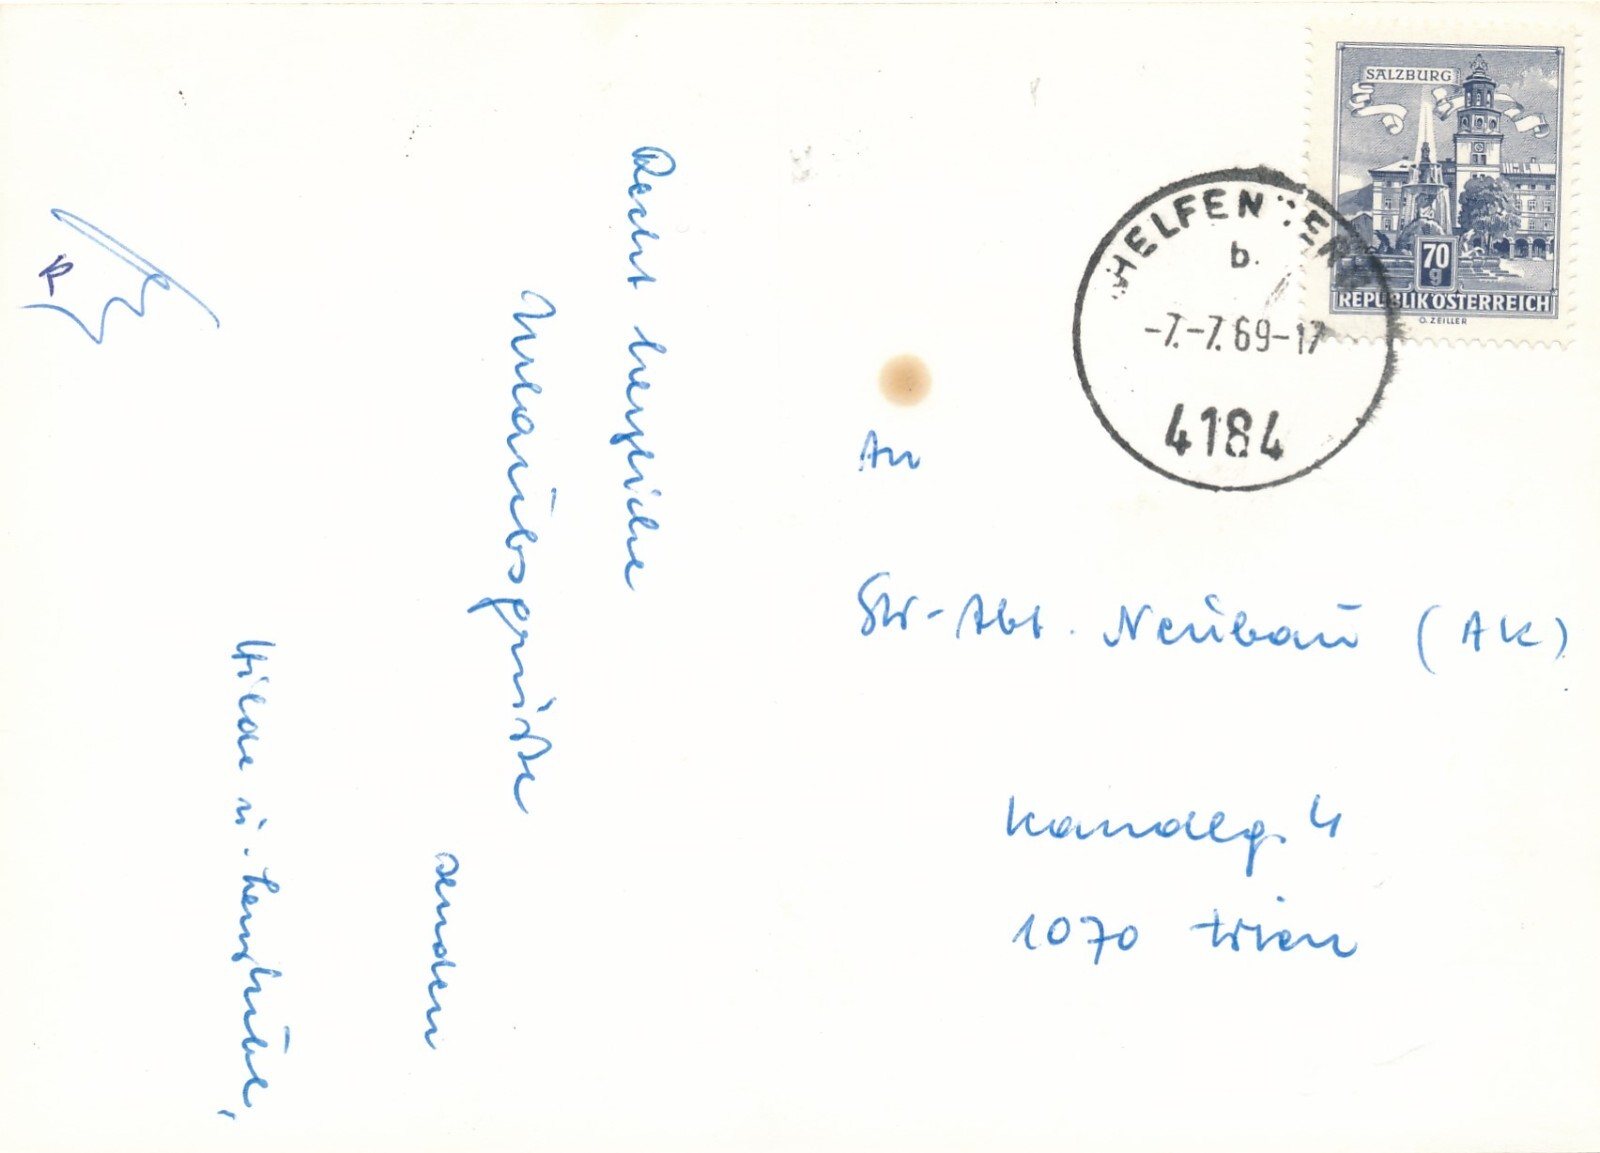 Recht herzliche
Urlaubsgrüße
senden
R
SALZBURG
70
g
REPUBLIK ÖSTERREICH
O. ZEILLER
HELFENBERG
b
-7.-7.69-17
4184
An
-Abt. Neubau (AK)
Kandlg. 4
1070 Wien